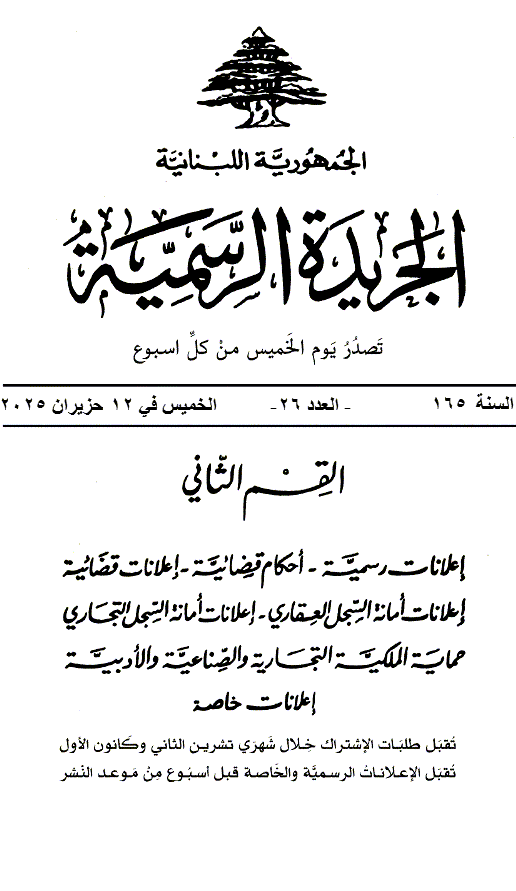 الجُمهُوريَّة اللبْنانيَّة
الجَريدَة الرسَّميَّة
تَصدُرُ يَوم الخَميس منْ كلِّ اسبوع
السنة ١٦٥ - العدد ٢٦- الخميس في ١٢ حزيران ٢٠٢٥
القِسْم الثّاني
إعلانات رسميَّة - أحكام قضائيَّة - إعلانات قضائية
إعلانات أمانة السِّجل العقاري - إعلانات أمانة السِّجل التجاري
حماية الملكيَّة التجارية والصِّناعيَّة والأدبيَّة
إعلانات خاصة
تُقبَل طلبَات الإشتراك خِلال شَهرَي تشرين الثاني وكَانون الأول
تُقبَل الإعلاناتُ الرسميَّة والخَاصة قَبل أسبُوع مِنْ مَوعد النّشر